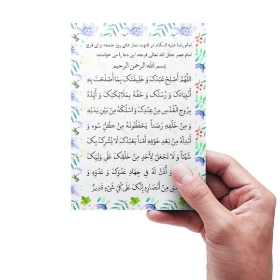 امام رضا علیه السلام در قنوت نماز های روز جمعه برای فرج
امام عصر عجل الله تعالی فرجه این دعا را می خواندند.
بسم الله الرحمن الرحیم
اَللّهُمَّ اَصْلِحْ عَبْدَكَ وَ خَلیفَتَكَ بِما اَصْلَحْتَ بِهِ
اَنْبِیائَكَ وَ رُسُلَكَ وَ حُفَّهُ بِمَلائِكَتِكَ وَ اَیِّدْهُ
بِرُوحِ الْقُدُسِ مِنْ عِنْدِكَ وَ اسْلُكْهُ مِنْ بَیْنِ یَدَیْهِ
وَ مِنْ خَلْفِهِ رَصَداً یَحْفَظُونَهُ مِنْ كُلِّ سُوءٍ وَ
اَبْدِلْهُ مِنْ بَعْدِ خَوْفِهِ اَمْناً یَعْبُدُكَ لا یُشْرِكُ بِكَ
شَیْئاً وَ لا تَجْعَلْ لِاَحَدٍ مِنْ خَلْقِكَ عَلی وَلِیِّكَ
وَ ائْذَنْ لَهُ فی جِهادِ عَدُوِّكَ وَ عَدُوِّهِ
مِنْ اَنْصارِهِ اِنَّكَ عَلی كُلِّ شَیْءٍ قَدیرٌ